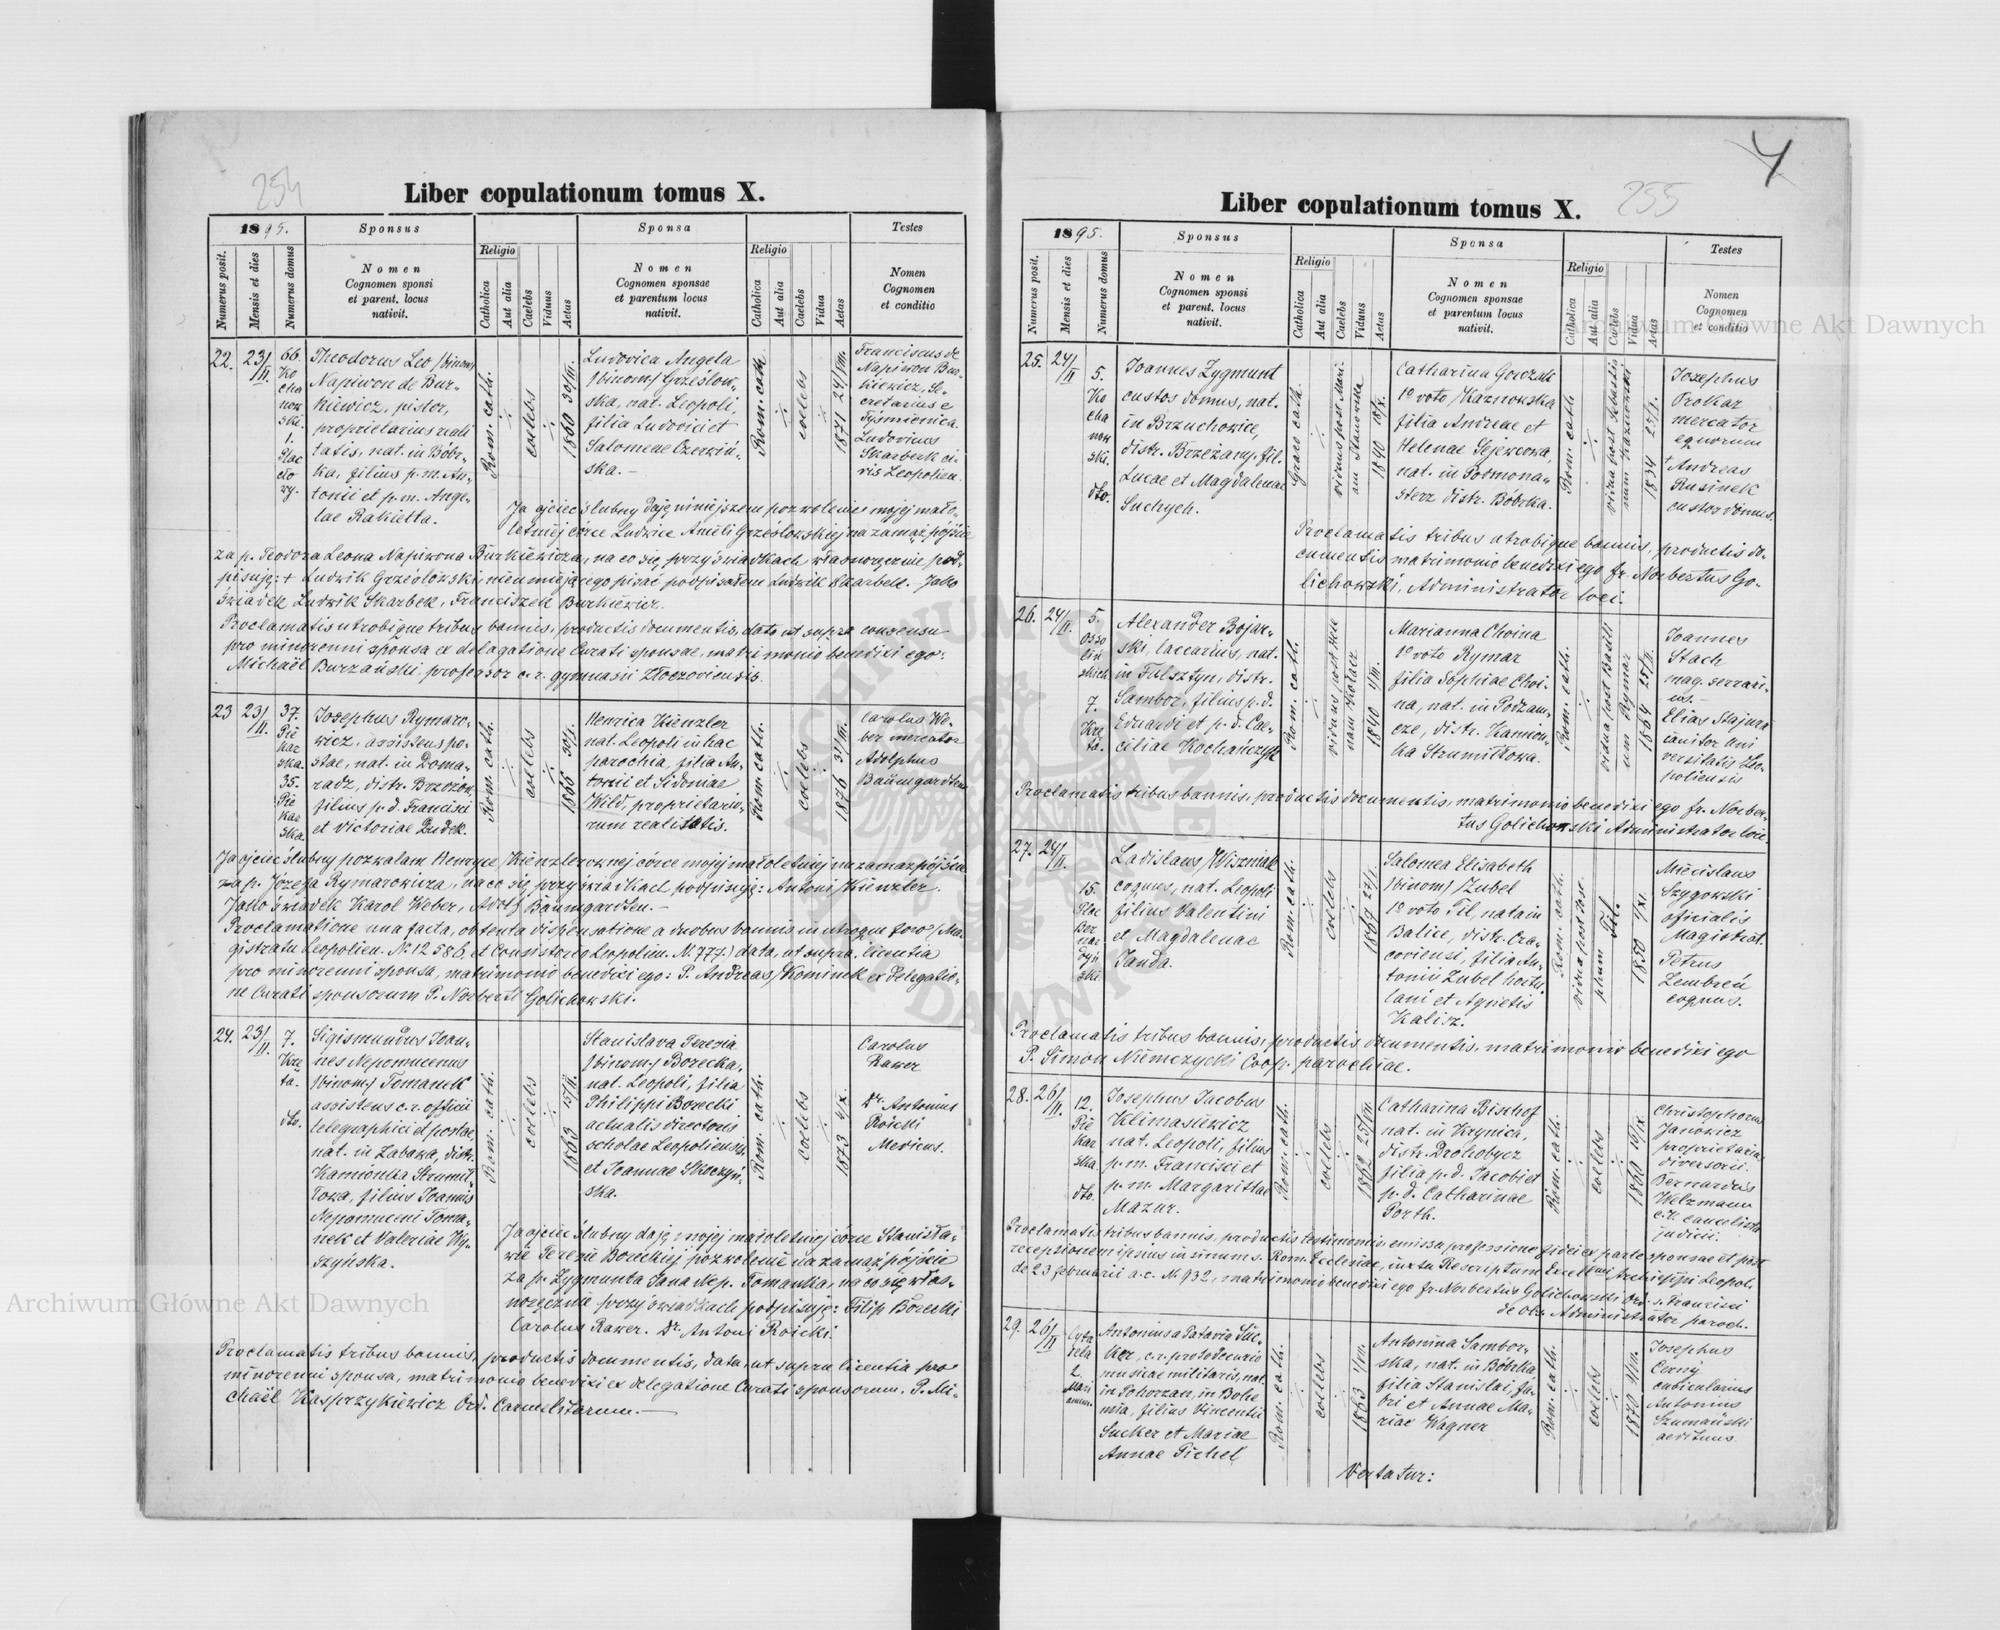 254
Liber copulationum tomus X.
1895.
Sponsus
Sponsa
Testes
Numerus posit.
Mensis et dies
Numerus domus
Nomen
Cognomen sponsi
et parent. locus
nativit.
Religio
Catholica
Aut alia
Caelebs
Viduus
Aetas
Nomen
Cognomen sponsae
et parentum locus
nativit.
Religio
Catholica
Aut alia
Caelebs
Vidua
Aetas
Nomen
Cognomen
et conditio
22.
23/II.
66.
Ko
cha
now
ski.
1.
Plac
Theodorus Leo /binom/
Napiwon de Bur-
kiewicz, pistor,
proprietarius reali
tatis, nat. in Bóbr-
ka, filius p. m. An-
tonii et p. m. Ange-
lae Rakietta.
Rom. cath.
coelebs
1860 30/III.
Ludovica Angela
/binom/ Grześlow-
ska, nat. Leopoli,
filia Ludovici et
Salomeae Czerwiń-
ska.-
Rom. cath.
coelebs
1871 24/VIII.
Franciscus de
Napiwon Bur-
kiewicz, se-
cretarius e
Tyśmienica.
Ludovicus
Skarbek ci-
vis Leopolien.
Ja ojciec ślubny daję niniejszem pozwolenie mojej mało-
letniej córce Ludwice Anieli Grześlowskiej na zamąż pójście
za p. Teodora Leona Napiwona Burkiewicza, na co się przy świadkach własnoręcznie pod-
pisuję: + Ludwik Grześlowski nieumiejącego pisać podpisałem Ludwik Skarbek. Jako
świadek Ludwik Skarbek, Franciszek Burkiewicz.
Proclamatis utrobique tribus bannis, productis documentis, dato ut supra consensu
pro minorenni sponsa ex delegatione Curati sponsae, matrimonio benedixi ego:
Michaël Burzański professor c. r. gymnasii Złoczoviensis.
23
23/II.
37.
Pie
kar
ska.
35.
Pie
kar
ska.
Josephus Rymaro-
wicz, assistens po-
stae, nat. in Doma-
radz, distr. Brzozów
filius p. d. Francisci
et Victoriae Dudek.
Rom. cath.
coelebs
1866 30/I.
Henrica Kienzler
nat. Leopoli in hac
parochia, filia An-
tonii et Sidoniae
Wild, proprietario-
rum realitatis.
Rom. cath.
coelebs
1876 31/III.
Carolus We-
ber mercator
Adolphus
Baumgardten
Ja ojciec ślubny pozwalam Henryce Kienzlerównej córce mojej małoletniej na zamąż pójście
za p. Józefa Rymarowicza, na co się przy świadkach podpisuję: Antoni Kienzler.
Jako świadek Karol Weber, Adolf Baumgardten.-
Proclamatione una facta, obtenta dispensatione a duobus bannis in utroque foro /Ma-
gistratu Leopolien. N. 12586, et Consistorio Leopolien. N. 777/ data, ut supra, licentia
pro minorenni sponsa, matrimonio benedixi ego: P. Andreas Kominek ex delegatio-
ne Curati sponsorum P. Norberti Golichowski.
24.
23/II.
7.
Krę
ta.
dto.
Sigismundus Joan-
nes Nepomucenus
/binom/ Tomanek
assistens c. r. officii
telegraphici et postae,
nat. in Zabawa, distr.
Kamionka Strumił-
łowa, filius Joannis
Nepomuceni Toma-
nek et Valeriae Wy-
szyńska.
Rom. cath.
coelebs
1863 15/II.
Stanislava Teresia
/binom/ Borecka,
nat. Leopoli, filia
Philippi Borecki
actualis directoris
scholae Leopoliensis,
et Joannae Skoczyń-
ska.
Rom. cath.
coelebs
1873 4/X.
Carolus
Rawer
Dr. Antonius
Roicki
Medicus.
Ja ojciec ślubny daję mojej małoletniej córce Stanisła-
wie Teresie Boreckiej pozwolenie na zamąż pójście
za p. Zygmunta Jana Nep. Tomanka, na co się włas-
noręcznie przy świadkach podpisuję: Filip Borecki
Carolus Rawer. Dr. Antoni Roicki.
Proclamatis tribus bannis, productis documentis, data, ut supra licentia pro
minorenni sponsa, matrimonio benedixi ex delegatione Curati sponsorum. P. Mi-
chaël Kasprzykiewicz Ord. Carmelitarum.-
4
255
Liber copulationum tomus X.
1895.
Sponsus
Sponsa
Testes
Numerus posit.
Mensis et dies
Numerus domus
Nomen
Cognomen sponsi
et parent. locus
nativit.
Religio
Catholica
Aut alia
Caelebs
Viduus
Aetas
Nomen
Cognomen sponsae
et parentum locus
nativit.
Religio
Catholica
Aut alia
Caelebs
Vidua
Aetas
Nomen
Cognomen
et conditio
25.
24/II
5.
Ko
cha
now
ski.
dto.
Joannes Zygmunt
custos domus, nat.
in Brzuchowice,
distr. Brzeżany, fil.
Lucae et Magdalenae
Suchych.
Graeco cath.
viduus post Mari-
am Stanowska
1840
Catharina Gowzak
1º voto Kaznowska
filia Andreae et
Helenae
nat. in Podmona-
sterz distr. Bóbrka.
Rom. cath
vidua post Sebasti
num Kaznowski
1834 25/I.
Josephus
Prokar
mercator
equorum
+ Andreas
Rusinek
custos domus.
Proclamatis tribus utrobique bannis, productis do-
cumentis matrimonio benedixi ego fr. Norbertus Go-
lichowski, Administrator loci.
26.
24/II.
5.
Osso
liń
skich
7.
Krę
ta.
Alexander Bojar-
ski, laccarius, nat.
in Fulsztyn, distr.
Sambor, filius p. d.
Eduardi et p. d. Cae-
ciliae Kochańczyk
Rom. cath.
1840
Marianna Choina
1º voto Rymar
filia Sophiae Choi-
na, nat. in Podzam-
cze, distr. Kamion-
ka Strumiłłowa.
Rom. cath.
vidua post Basili
um Rymar
1864 25/II.
Joannes
Stach
mag. serrari-
us.
Elias Stajura
ianitor uni
versitatis Leo-
poliensis
Proclamatis tribus bannis, productis documentis, matrimonio benedixi ego fr. Norber-
tus Golichowski Administrator loci.
27.
24/II.
15.
Plac
Ber
nar
dyń
ski.
Ladislaus Wiszniak
coquus, nat. Leopoli
filius Valentini
et Magdalenae
Janda.
Rom. cath.
coelebs
1869 27/I.
Salomea Elisabeth
/binom/ Zubel
1º voto Til, nata in
Balice, distr. Cra-
coviensi, filia An-
tonii Zubel hortu
lani et Agnetis
Kalisz.
Rom. cath.
vidua post Jose-
phum Til.
1850
Miecislaus
Szygowski
oficialis
Magistrat.
Petrus
coquus.
Proclamatis tribus bannis, productis documentis, matrimonio benedixi ego
P. Simon Niemczycki Coop. parochiae.
28.
26/II.
12.
Pie
kar
ska
dto.
Josephus Jacobus
Klimasiewicz
nat. Leopoli, filius
p. m. Francisci et
p. m. Margarittae
Mazur.
Rom. cath.
coelebs
1862 25/VII.
Catharina Bischof
nat. in Krynica,
distr. Drohobycz
filia p. d. Jacobi et
p. d. Catharinae
Porth.
Rom. cath.
coelebs
1860 16/IX.
Christophorus
Janowicz
proprietarius
diversorii.
Bernardus
Welzmann
c. r. cancelista
judicii.
Proclamatis tribus bannis, productis testimoniis emissa professione fidei ex parte sponsae et post
receptionem ipsius in sinum s. Rom. Ecclesiae, iuxta Rescriptum Excell mi Archiepipi Leopol.
de 23 februarii a. c. N. 932, matrimonio benedixi ego fr. Norbertus Golichowski Ord. s. Francisci
de Obs. Administrator paroch.
29.
26/II
Cyta
dela
2.
Antonius a Patavio Suc-
ker, c. r. protodecurio
musicae militaris, nat.
in Pohorzan, in Bohe
mia, filius Vincentii
Sucker et Mariae
Annae Pichel
Rom. cath.
coelebs
1863
Antonina Sambor-
ska, nat. in Bóbrka,
filia Stanislai, fa-
bri et Annae Ma-
riae Wagner
Rom. cath.
coelebs
1870
Josephus
Cerný
cubicularius
Antonius
Szumański
aedituus
Vertatur:
Archiwum Główne Akt Dawnych
Archiwum Główne Akt Dawnych
ARCHIWUM GŁÓWNE AKT DAWNYCH